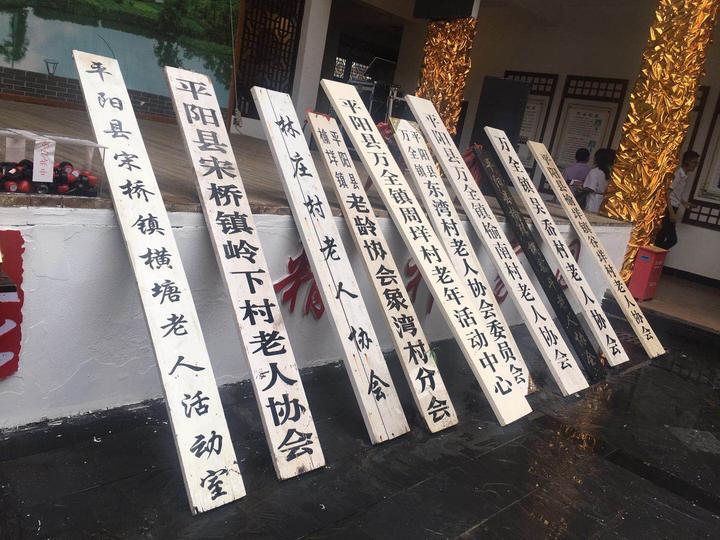 平阳县宋桥镇横塘老人活动室
平阳县宋桥镇岭下村老人协会
林庄村老人协会
平阳县
榆垟镇
老龄协会象湾村分会
平阳县万全镇周垟村老年活动中心
平阳县
万全镇
东湾村老人协会委员会
平阳县万全镇榆南村老人协会
万全镇吴岙村老人协会
平阳县榆垟镇谷垟村老人协会
精